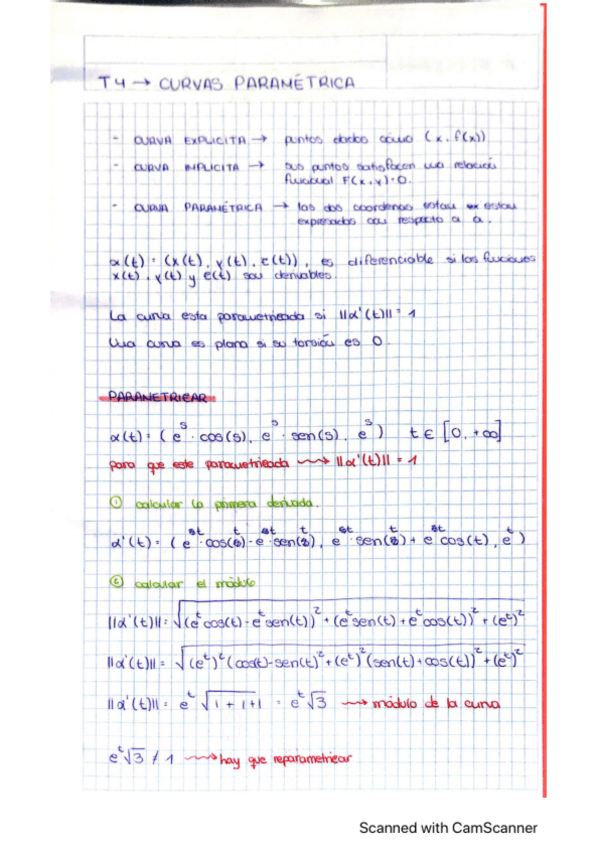 T4 → CURVAS PARAMÉTRICA
- CURVA EXPLICITA → puntos dados como (x, f(x))
- CURVA IMPLICITA → sus puntos satisfacen una relación
funcional F(x,y)=0.
- CURVA PARAMÉTRICA → las dos coordenas estan ex estan
expresadas con respecto a a.
α(t) = (x(t), y(t), z(t)), es diferenciable si las funciones
x(t), y(t) y z(t) son derivables.
La curva esta parametrizada si ||α'(t)|| = 1
Una curva es plana si su torsión es 0.
PARAMETRIZAR
α(t) = (e^s · cos(s), e^s · sen(s), e^s) t ∈ [0, +∞]
para que este parametrizada ⟿ ||α'(t)|| = 1
① calcular la primera derivada.
α'(t) = (e^t · cos(t) - e^t · sen(t), e^t · sen(t) + e^t cos(t), e^t)
② calcular el módulo
||α'(t)|| = √((e^t cos(t) - e^t sen(t))² + (e^t sen(t) + e^t cos(t))² + (e^t)²
||α'(t)|| = √((e^t)² (cost) - sen(t)² + (e^t)² (sen(t) + cos(t))² + (e^t)²
||α'(t)|| = e^t √1 + 1 + 1 = e^t √3 ⟿ módulo de la curva
e^t √3 ≠ 1 ⟿ hay que reparametrizar
Scanned with CamScanner